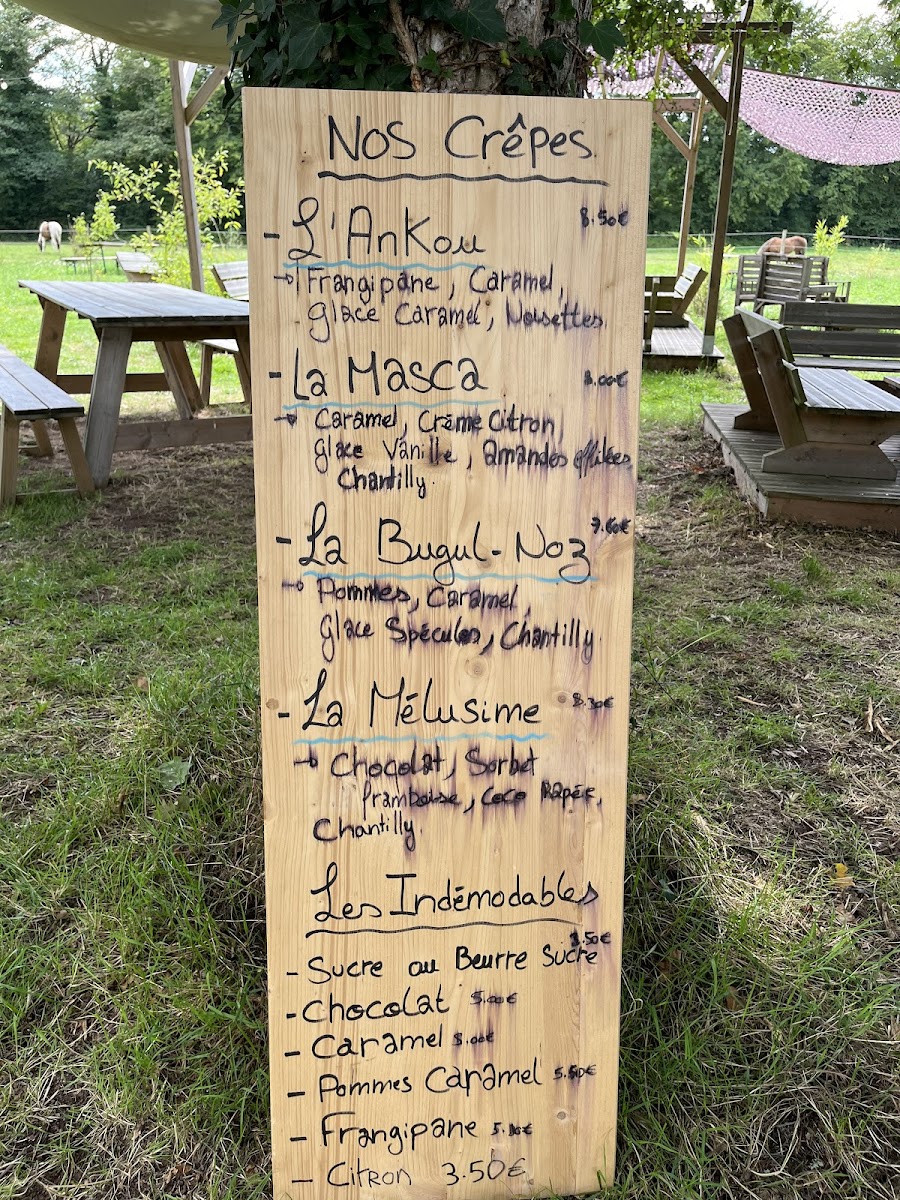 Nos Crêpes
- L'Ankou 8.50€
Frangipane, Caramel,
Glace Caramel, Noisettes
- La Masca 8.00€
Caramel, Crème Citron,
Glace Vanille, amandes effilées
Chantilly.
- La Bugul-Noz 7.60€
Pommes, Caramel,
Glace Spéculos, Chantilly.
- La Mélusime 8.30€
Chocolat, Sorbet
framboise, Coco Rapée,
Chantilly.
Les Indémodables
3.50€
- Sucre ou Beurre Sucre
- Chocolat 5.00€
- Caramel 5.00€
- Pommes Caramel 5.50€
- Frangipane
- Citron 3.50€